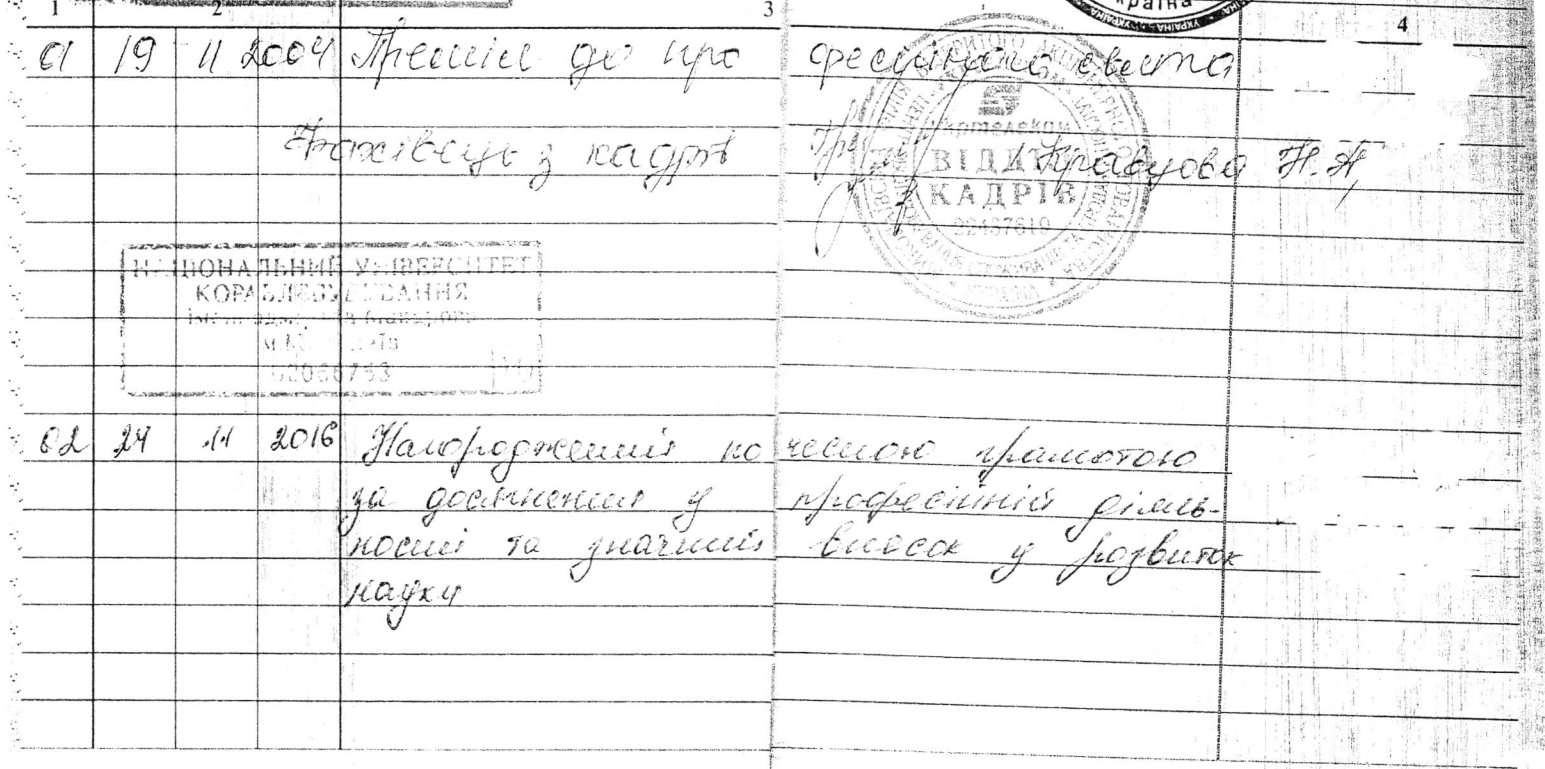 1 2 3 4
Україна
01 19 11 2004 Премія до професійного свята
Фахівець з кадрів Кравцова Н.А.
Укртелеком
ВІДДІЛ
КАДРІВ
НАЦІОНАЛЬНИЙ УНІВЕРСИТЕТ
КОРАБЛЕБУДУВАННЯ
імені адмірала Макарова
м. Миколаїв
02066753
02 24 11 2016 Нагороджений почесною грамотою
за досягнення у професійній діяль-
ності та значний внесок у розвиток
науки